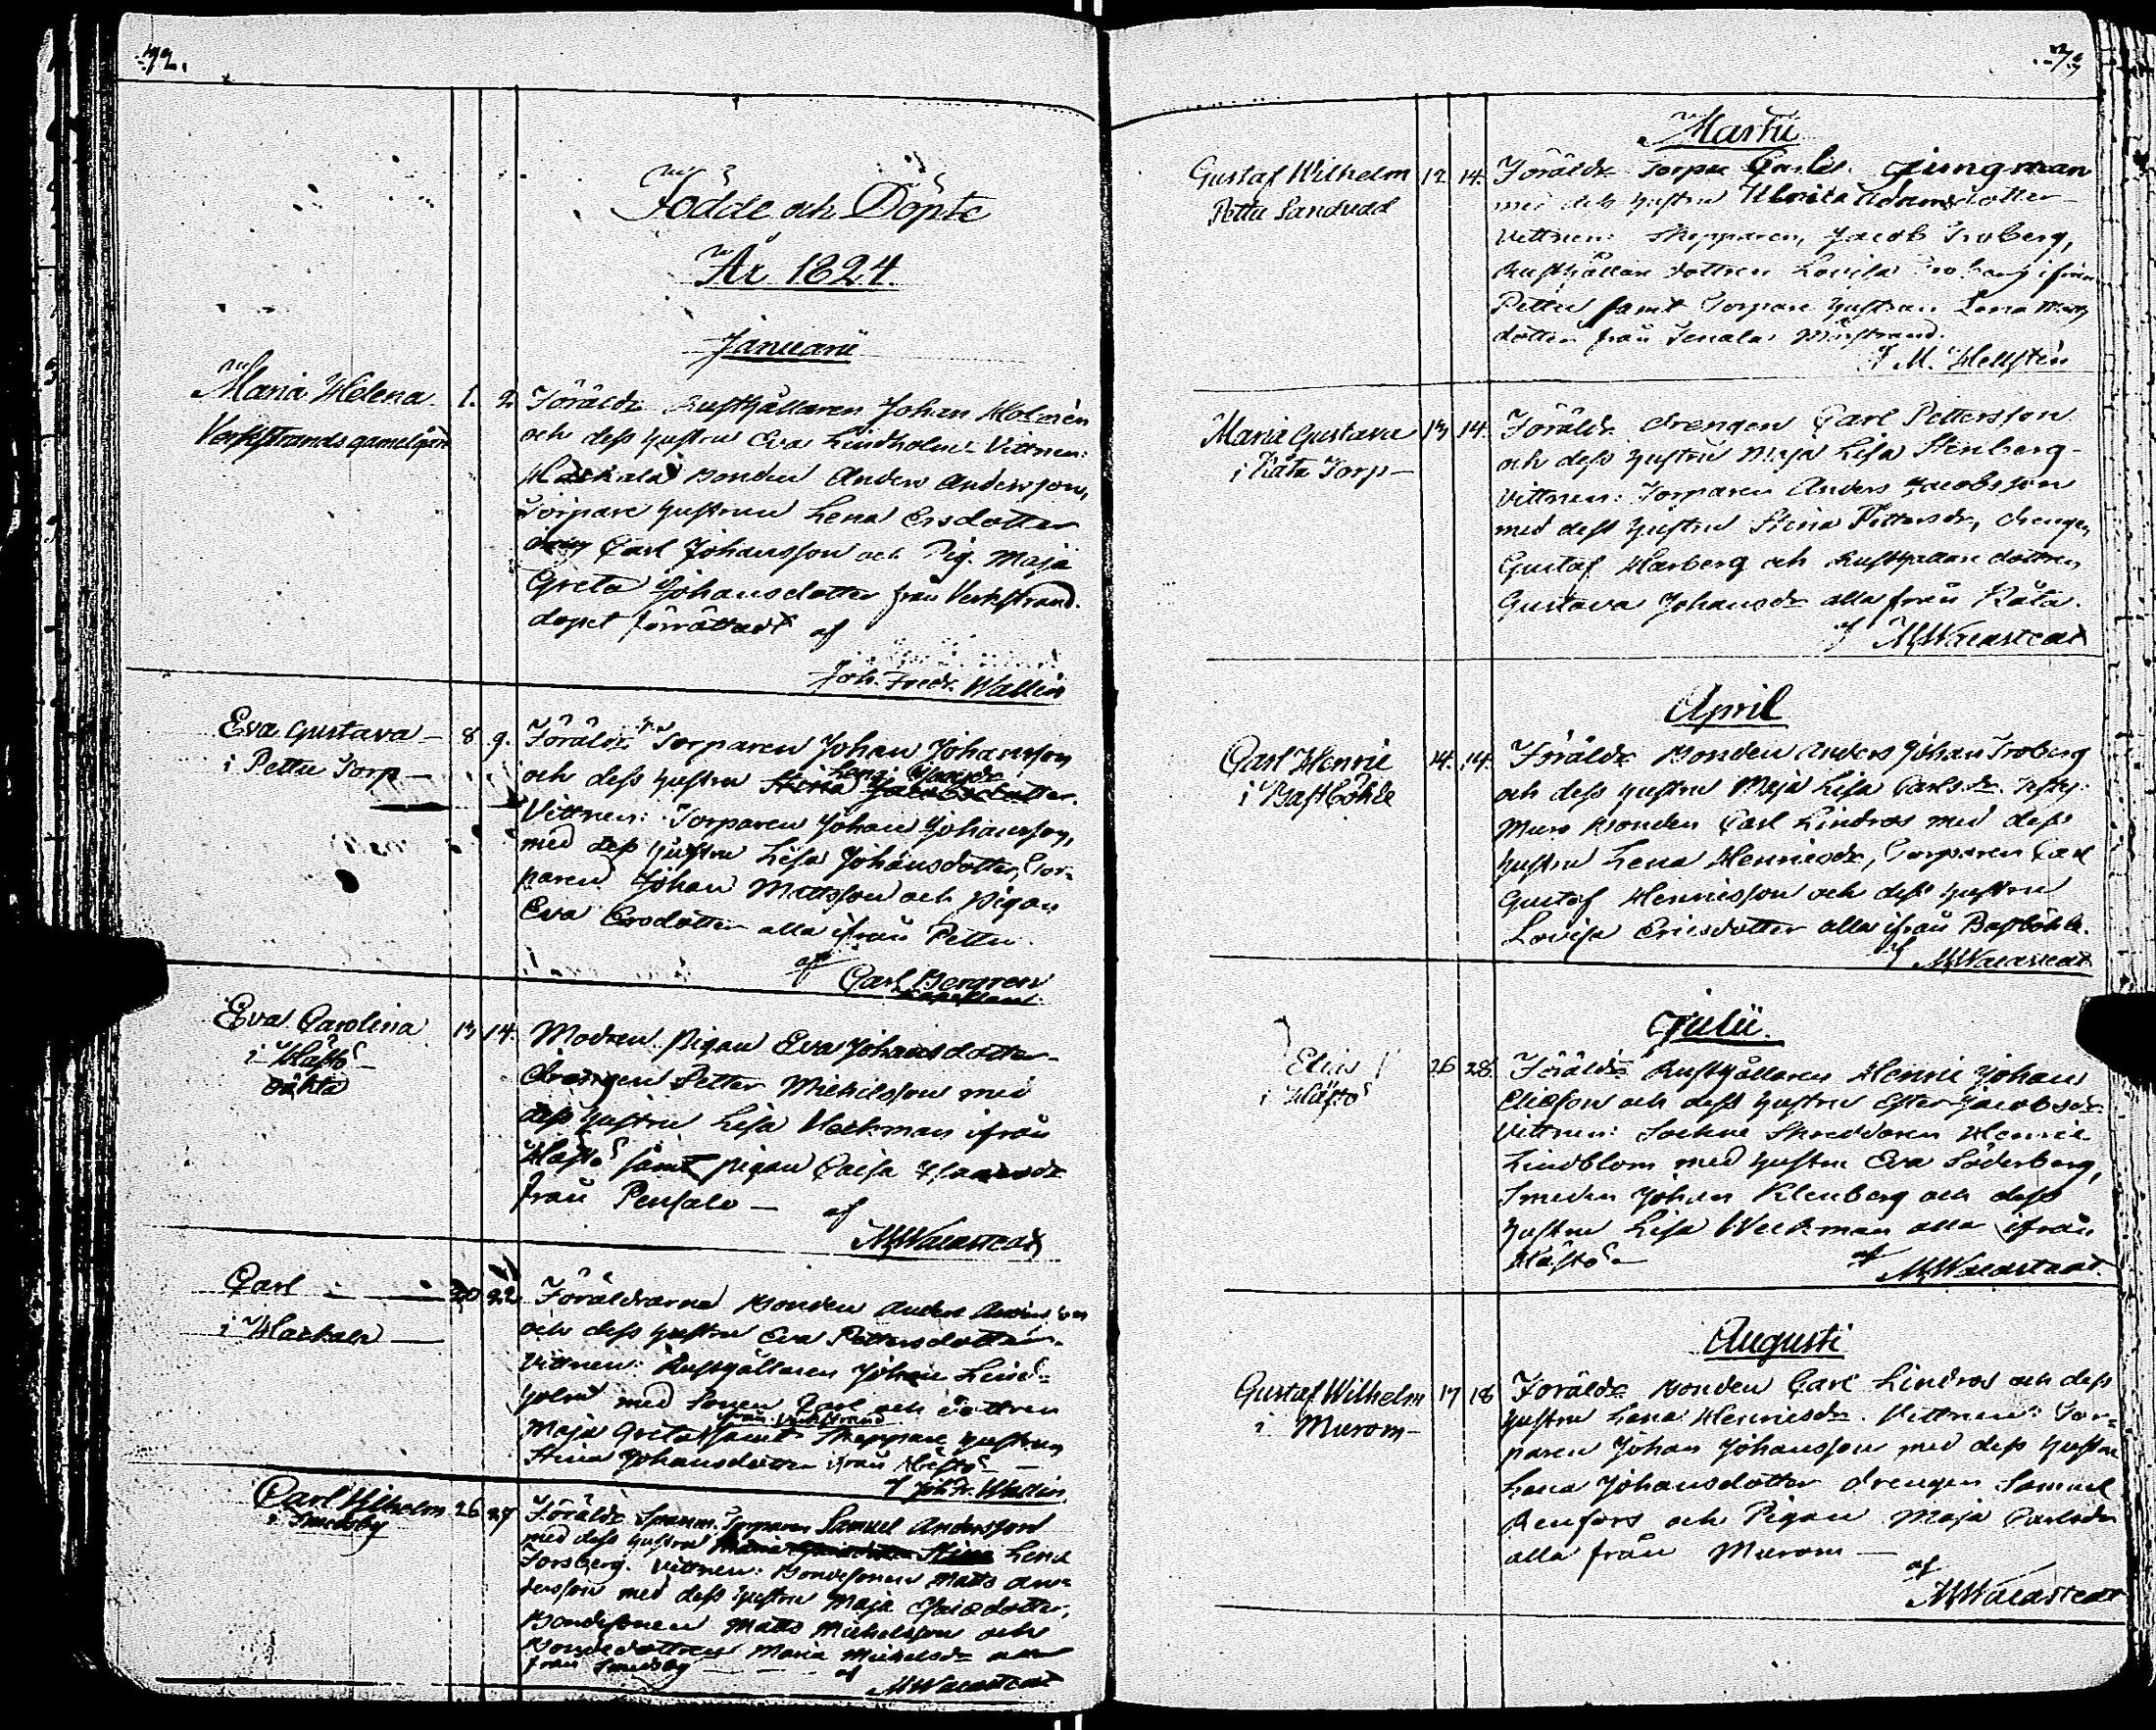 72.
Födde och Döpte
År 1824.
Januarii
Maria Helena
Verkstrands gamelgård
1. 2.
Föräldr Rusthållaren Johan Holmén
och dess hustru Eva Lindholm. Vittnen:
Bonden Anders Andersson,
Torpare hustrun Lena Ersdotter
Carl Johansson och Pig. Maja
Greta Johansdotter från Verkstrand.
dopet förrättadt af
Joh. Fredr. Wallin
Eva Gustava
i Pettu Torp
8 9.
Föräldr Torparen Johan Johansson
och dess hustru Lena
Stina Jacobsdotter.
Vittnen: Torparen Johan Johansson,
med dess hustru Lisa Johansdotter, Tor-
paren Johan Mattsson och pigan
Eva Ersdotter alla ifrån Pettu
af Carl Bergren
Kapellan
Eva Carolina
i Hästö
oäkta
13 14.
Modren pigan Eva Johansdotter
drängen Petter Michelsson med
dess hustru Lisa Heckman ifrån
Hästö samt pigan Caisa
från Pensalo — af
Carl
i Harkala
20 22
Föräldrarna Bonden Anders Andersson
och dess hustru Eva Pettersdotter.
Vittnen: Rusthållaren Johan Lind-
holm med Sonen Carl och dottren
från Verkstrand
Maja Greta samt Skeppare hustrun
Stina Johansdotter ifrån Hästö
af Joh. Fr. Wallin
Carl Wilhelm
i Smedsby
26 27
Föräldr Spanm. Torparen Samuel Andersson
med dess hustru Stina Lena
Forsberg. Vittnen: Bondesonen Matts An-
dersson med dess hustru Maja
Bondesonen Matts Michelsson och
Bondedottren Maria Michelsdr alla
från Smedsby — af
73
Martii
Gustaf Wilhelm
Pettu Sandudd
12 14.
Föräldr Torpar Ljungman
med dess hustru Ulrica Adamsdotter
Vittnen: Skepparen, Jacob Troberg,
Rusthållare dottren Lovisa Troberg ifrån
Pettu samt Torpare hustrun Lena Matts
dotter från Tenala
J. M. Hellsten
Maria Gustava
i Råta Torp
13 14.
Föräldr drengen Carl Pettersson
och dess hustru Maja Lisa Stenberg
Vittnen: Torparen Anders Jacobsson
med dess hustru Stina Pettersdr, drengen
Gustaf Harberg och Rusthållare dottren
Gustava Johansdr alla från Råta.
af
April
Carl Henric
i Bastböhle
14. 14.
Föräldr Bonden Anders Johan Troberg
och dess hustru Maja Lisa Carlsdr.
Bonden Carl Lindros med dess
hustru Lena Henricsdr, Torparen Carl
Gustaf Henricsson och dess hustru
Lovisa Ericsdotter alla ifrån Bastböhle.
af
Julii.
Elias
i Hästö
26 28.
Föräldr Rusthållaren Henric Johan
Eliasson och dess hustru Ester Jacobsdr
Vittnen: Sockne Skreddaren Henric
Lindblom med hustru Eva Söderberg,
Smeden Johan Klenberg och dess
hustru Lisa Weckman alla ifrån
Hästö — af
Augusti
Gustaf Wilhelm
i Murom
17 18
Föräldr Bonden Carl Lindros och dess
hustru Lena Henricsdr. Vittnen: Tor-
paren Johan Johansson med dess hustru
Lena Johansdotter drengen Samuel
Renfors och Pigan Maja Carlsdr
alla från Murom —
af